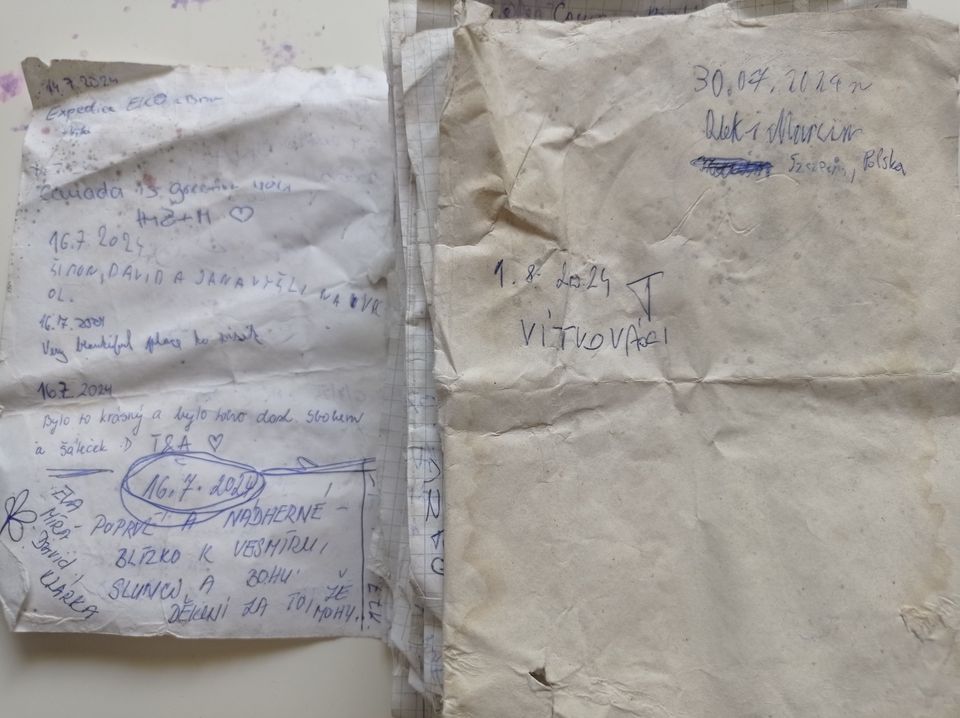 14.7.2024
Expedice EKO z Brna
Canada is
H+Ž+M ♡
16.7.2024
ŠIMON, DAVID A JANA VYŠLI NA
OL.
16.7.2024
Very beautiful place to visit
16.7.2024
Bylo to krásný a bylo toho dost. Sbohem
a šáteček :D T&A ♡
16.7.2024
EVA
MÍRA
DAVID,
KLÁRKA
POPRVÉ A NÁDHERNÉ -
BLÍZKO K VESMÍRU,
SLUNCI A BOHU.
DĚKUNI ZA TO, ŽE
MOHU.
30.07.2024
Olek i Marcin
Polska
1.8.2024
VÍTKOVÁCI